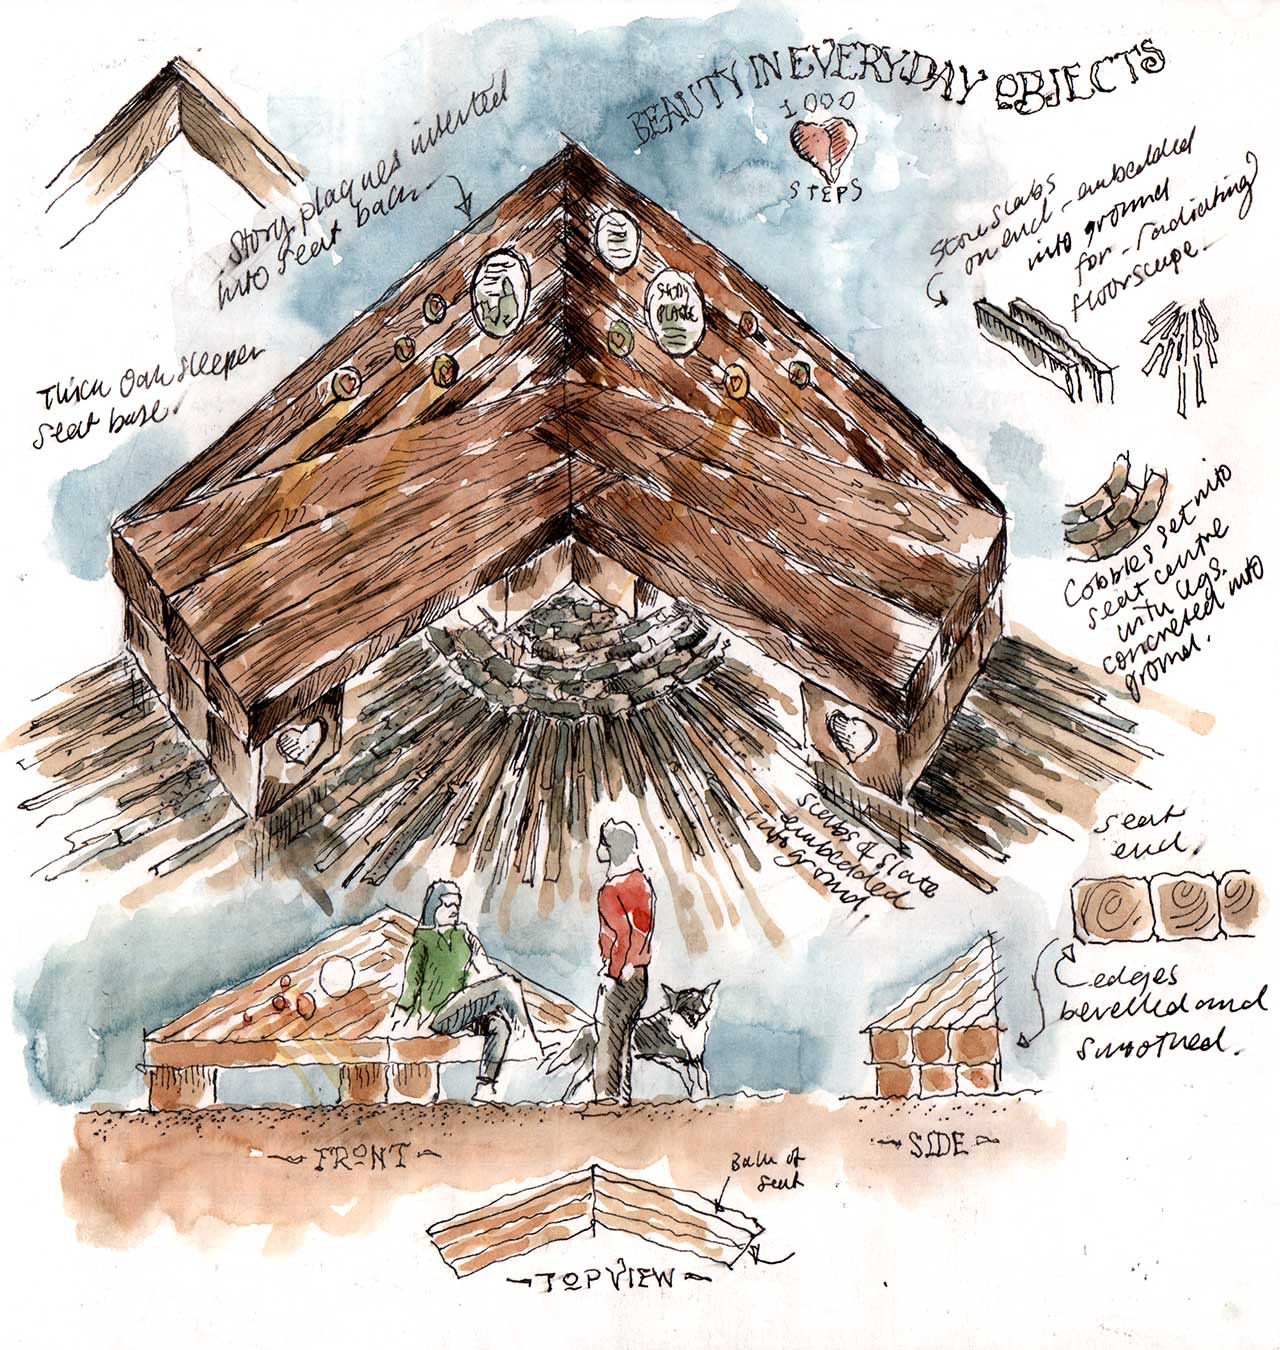 BEAUTY IN EVERYDAY OBJECTS
1000
STEPS
Story plaques inserted
into seat back
Thick Oak sleeper
seat base
STORY
PLAQUE
Stone slabs
on end - embedded
into ground
for - radiating
floorscape
Cobbles set into
seat centre
with legs
concreted into
ground.
slabs of slate
embedded
into ground!
seat
end
edges
bevelled and
smoothed.
FRONT
SIDE
Back of
seat
TOP VIEW